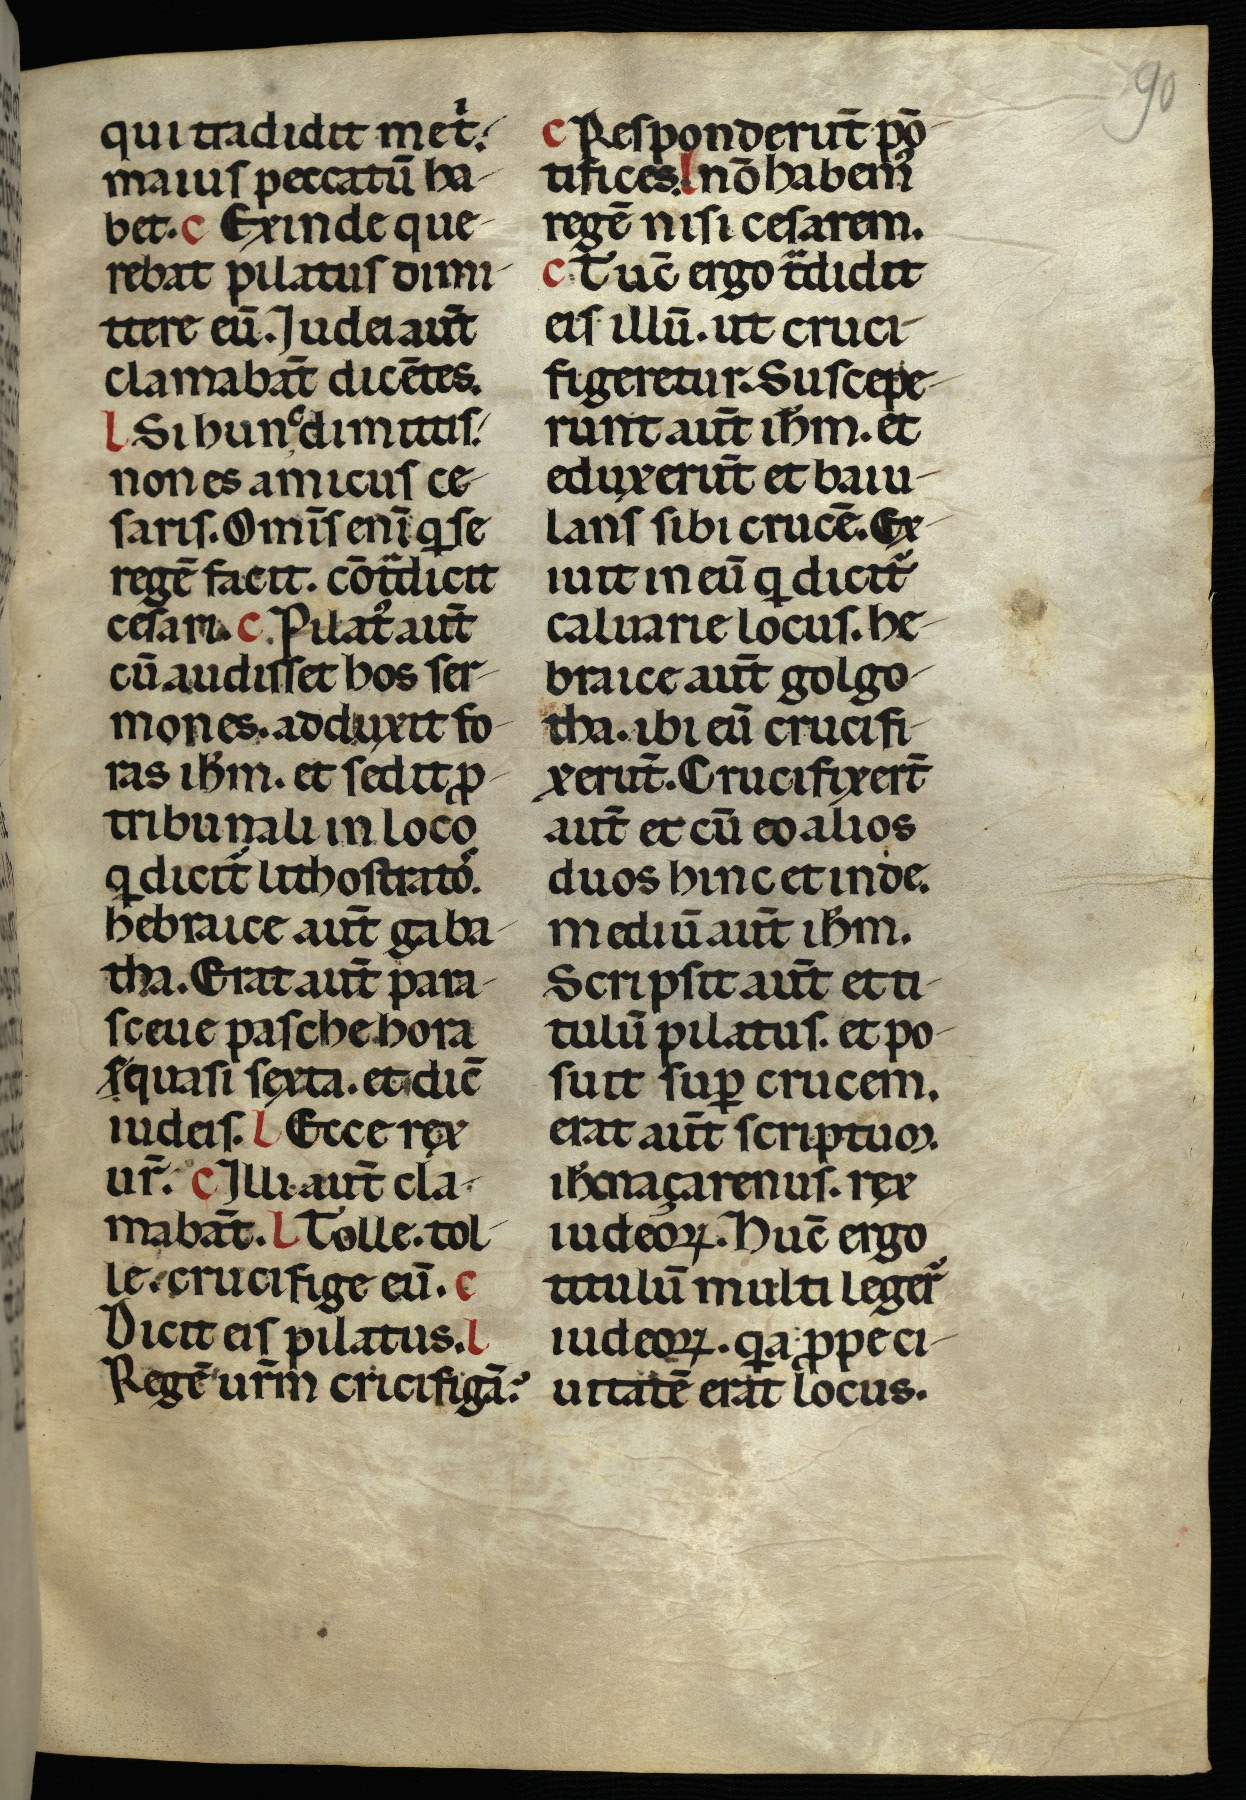 90
qui tradidit me t̄ i.
maius peccatū ha-
bet. c Exinde que-
rebat pilatus dimi-
ttere eū. Judei aut̄
clamabāt dicētes.
l Si hunc dimittis.
non es amicus ce-
saris. Omīs enī q̇ se
regē facit. cōt̄dicit
cesari. c Pilat᾽ aut̄
cū audisset hos ser-
mones. adduxit fo-
ras ih̄m. et sedit ꝓ
tribunali in loco
q̇ dicit᷑ lithostrató.
hebraice aut̄ gaba-
tha. Erat aut̄ para-
sceue pasche hora
quasi sexta. et dic̄
iudeis. l Ecce rex
ur̄. c Illi aut̄ cla-
mabāt. l Tolle. tol-
le. crucifige eū. c
Dicit eis pilatus. l
Regē ur̄m cricifigā.
c Responderūt pō-
tifices. l nō habem᾽
regē nisi cesarem.
c Tūc ergo t̄didit
eis illū. ut cruci-
figeretur. Suscepe-
runt aut̄ ih̄m. et
eduxerūt et baiu-
lans sibi crucē. Ex-
iuit in eū q dicit᷑
caluarie locus. he-
braice aut̄ golgo-
tha. ibi eū crucifi-
xerūt. Crucifixer̄t
aut̄ et cū eo alios
duos hinc et inde.
mediū aut̄ ih̄m.
Scripsit aut̄ et ti-
tulū pilatus. et po-
suit suꝑ crucem.
erat aut̄ scriptum.
ih̄c naçarenus. rex
iudeoꝝ. Hūc ergo
titulū multi leger̄
iudeoꝝ. q̇a ꝓpe ci-
uitatē erat locus.